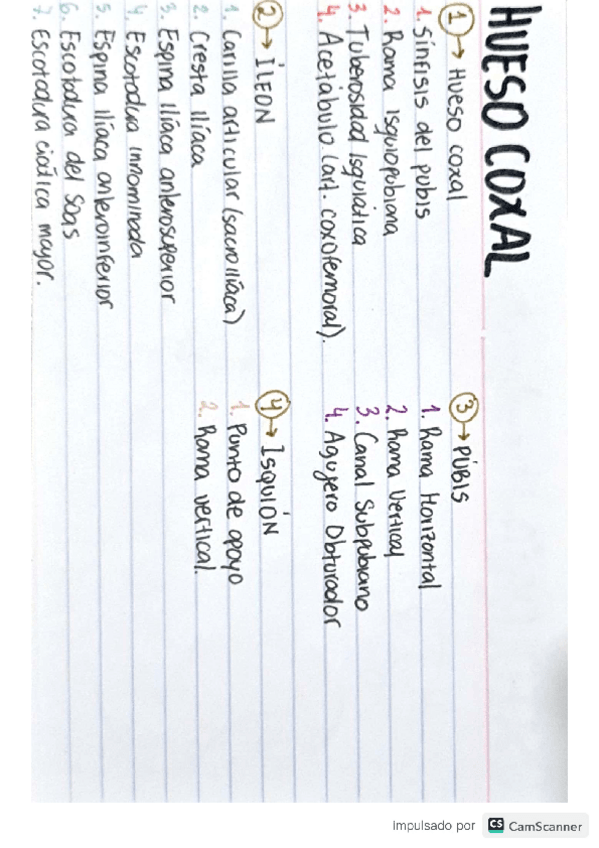 HUESO COXAL
1 → Hueso coxal
1. Sínfisis del pubis
2. Rama Isquiopubiana
3. Tuberosidad Isquiática
4. Acetábulo (art. coxofemoral).
2 → ÍLEON
1. Carilla articular (sacroilíaca)
2. Cresta ilíaca
3. Espina Ilíaca anterosuperior
4. Escotadura innominada
5. Espina Ilíaca anteroinferior
6. Escotadura del Soas
7. Escotadura ciática mayor.
3 → PÚBIS
1. Rama Horizontal
2. Rama Vertical
3. Canal Subpubiano
4. Agujero Obturador
4 → ISQUIÓN
1. Punto de apoyo
2. Rama vertical.
Impulsado por CS CamScanner